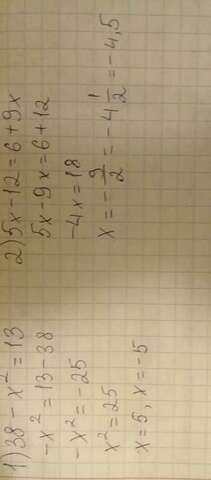 1) 38 - x² = 13
-x² = 13 - 38
-x² = -25
x² = 25
x = 5, x = -5
2) 5x - 12 = 6 + 9x
5x - 9x = 6 + 12
-4x = 18
x = -9/2 = -4 1/2 = -4,5